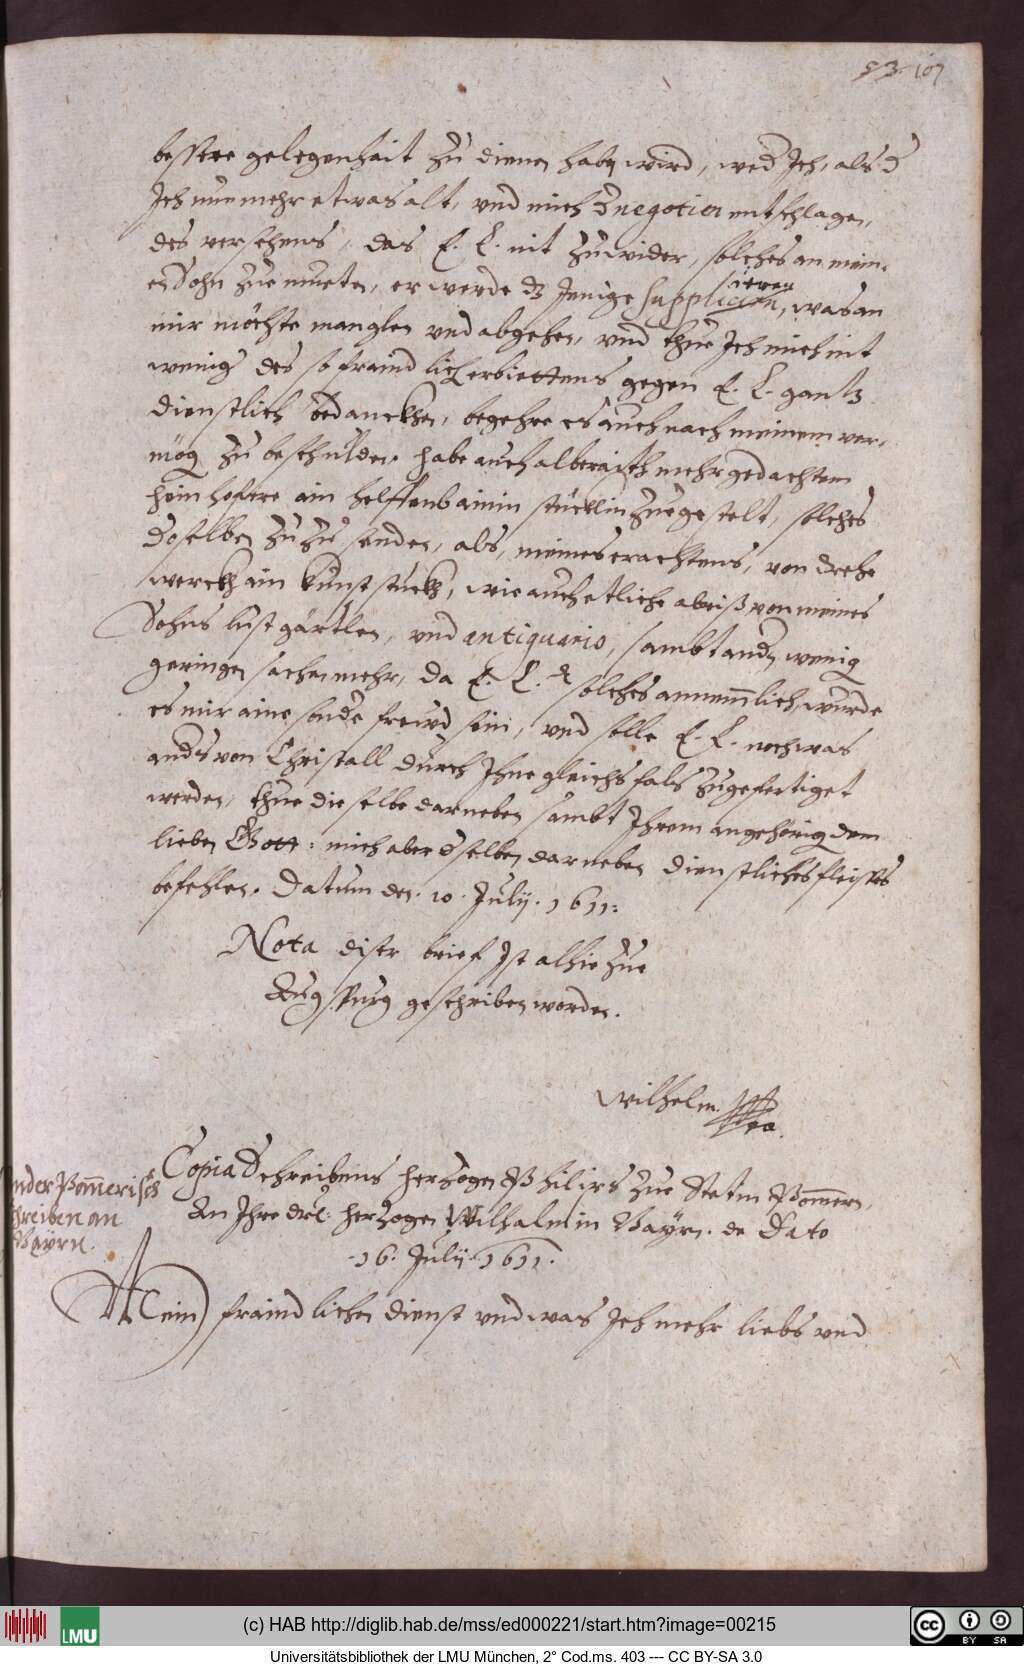 53. 107
bessere gelegenhait zu dienen haben wird, wed Ich, als d
Ich nunmehr etwas alt, und mich d negotien entschlagen,
des versehens, das E. L. nit zuwider, solches an mein,
en Sohn zue mueten, er werde dz Jenige supplicieren, was an
mir möchte manglen und abgehen, und thue Ich mich nit
wenig des so fraindlich erbiettens gegen E. L. gantz
dienstlich bedanckhen, begehre es auch nach meinem ver,
mög zu beschulden. habe auch alberaith mehrgedachtem
hainhofere ain helffenbainin stucklin zuegestelt, solches
Deselben zu zu senden, als, meines erachtens, von drehe
werckh ain kunststuckh, wie auch etliche abriß von meines
Sohns lustgärtlen, und antiquario, sambt andn wenig
geringen sachen mehr, da E. L. solches annemmlich, wurde
es mir aine sonde freud sein, und solle E. L. noch was
ands von Christall durch Ihne gleichsfals zugefertiget
werden, thue dieselbe darneben sambt Ihrem angehörig dem
lieben Gott: mich aber dselben darneben dienstliches fleisses
befehlen. Datum den. 10. Julij. 1611:
Nota diser brief Ist alhie zue
Augspurg geschriben worden.
Wilhelm
ander Pommerisch
schreiben an
Bayrn.
Copia Schreibens herzogen Philips zue Stetin Pommern,
An Ihre drl: herzogen Wilhalm in Bayrn. de Dato
16. Julij. 1611.
Mein fraindlichen dienst und was Ich mehr liebs und
(c) HAB http://diglib.hab.de/mss/ed000221/start.htm?image=00215
LMU
cc BY SA
Universitätsbibliothek der LMU München, 2° Cod.ms. 403 --- CC BY-SA 3.0